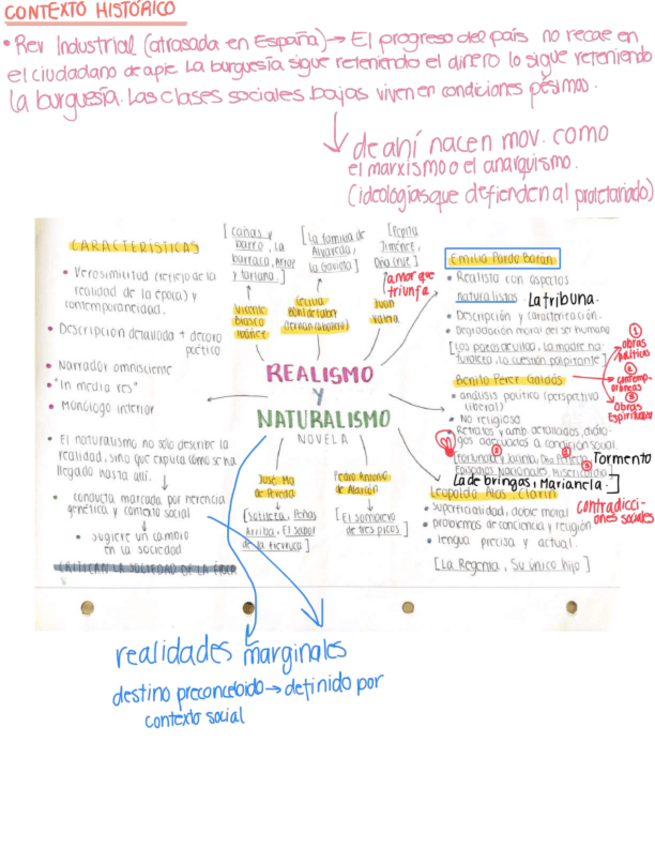 CONTEXTO HISTÓRICO
• Rev Industrial (atrasada en España)→ El progreso del país no recae en
el ciudadano de a pie La burguesía sigue reteniendo el dinero lo sigue reteniendo
la burguesía. Las clases sociales bajas viven en condiciones pésimas.
de ahí nacen mov. como
el marxismo o el anarquismo.
(ideologías que defienden al proletariado)
CARACTERÍSTICAS
• Verosimilitud (reflejo de la
realidad de la época) y
contemporaneidad.
• Descripcion detallada + decoro
poético
• Narrador omnisciente
• "In media res"
• Monólogo interior
• El naturalismo no solo describe la
realidad, sino que explica cómo se ha
llegado hasta allí.
• conducta marcada por herencia
genética y contexto social
• sugiere un cambio
en la sociedad
CRITICAN LA SOCIEDAD DE LA ÉPOCA
[cañas y
barro, La
barraca, Arroz
y tartana.]
Vicente
Blasco
Ibáñez
[La familia de
Alvareda,
la Gaviota]
Cecilia
Böhl de Faber
(Fernán Caballero)
[Pepita
Jiménez,
Dña Luz]
amor que
triunfa
Juan
Valera
REALISMO
Y
NATURALISMO
NOVELA
José Ma
de Pereda
[Sotileza, Peñas
Arriba, El sabor
de la tierruca]
Pedro Antonio
de Alarcón
[El sombrero
de tres picos]
Emilia Pardo Bazán
• Realista con aspectos
naturalistas. La tribuna.
• Descripción y caracterización.
• Degradación moral del ser humano
[Los pazos de Ulloa, la madre na-
turaleza, la cuestión palpitante]
Benito Pérez Galdós
① obras
políticas
② contemp-
oráneas
③ obras
Espirituales
• análisis político (perspectiva
liberal)
• No religioso
• Retratos y amb. detallados, diálo-
gos adecuados a condición social.
[Fortunata y Jacinta, Dña Perfecta, Tormento
Episodios Nacionales, Misericordia,
La de bringas, Marianela.]
Leopoldo Alas "Clarín"
• superficialidad, doble moral
contradicci-
ones sociales
• problemas de conciencia y religión
• lengua precisa y actual.
[La Regenta, Su único hijo]
realidades marginales
destino preconcebido→definido por
contexto social